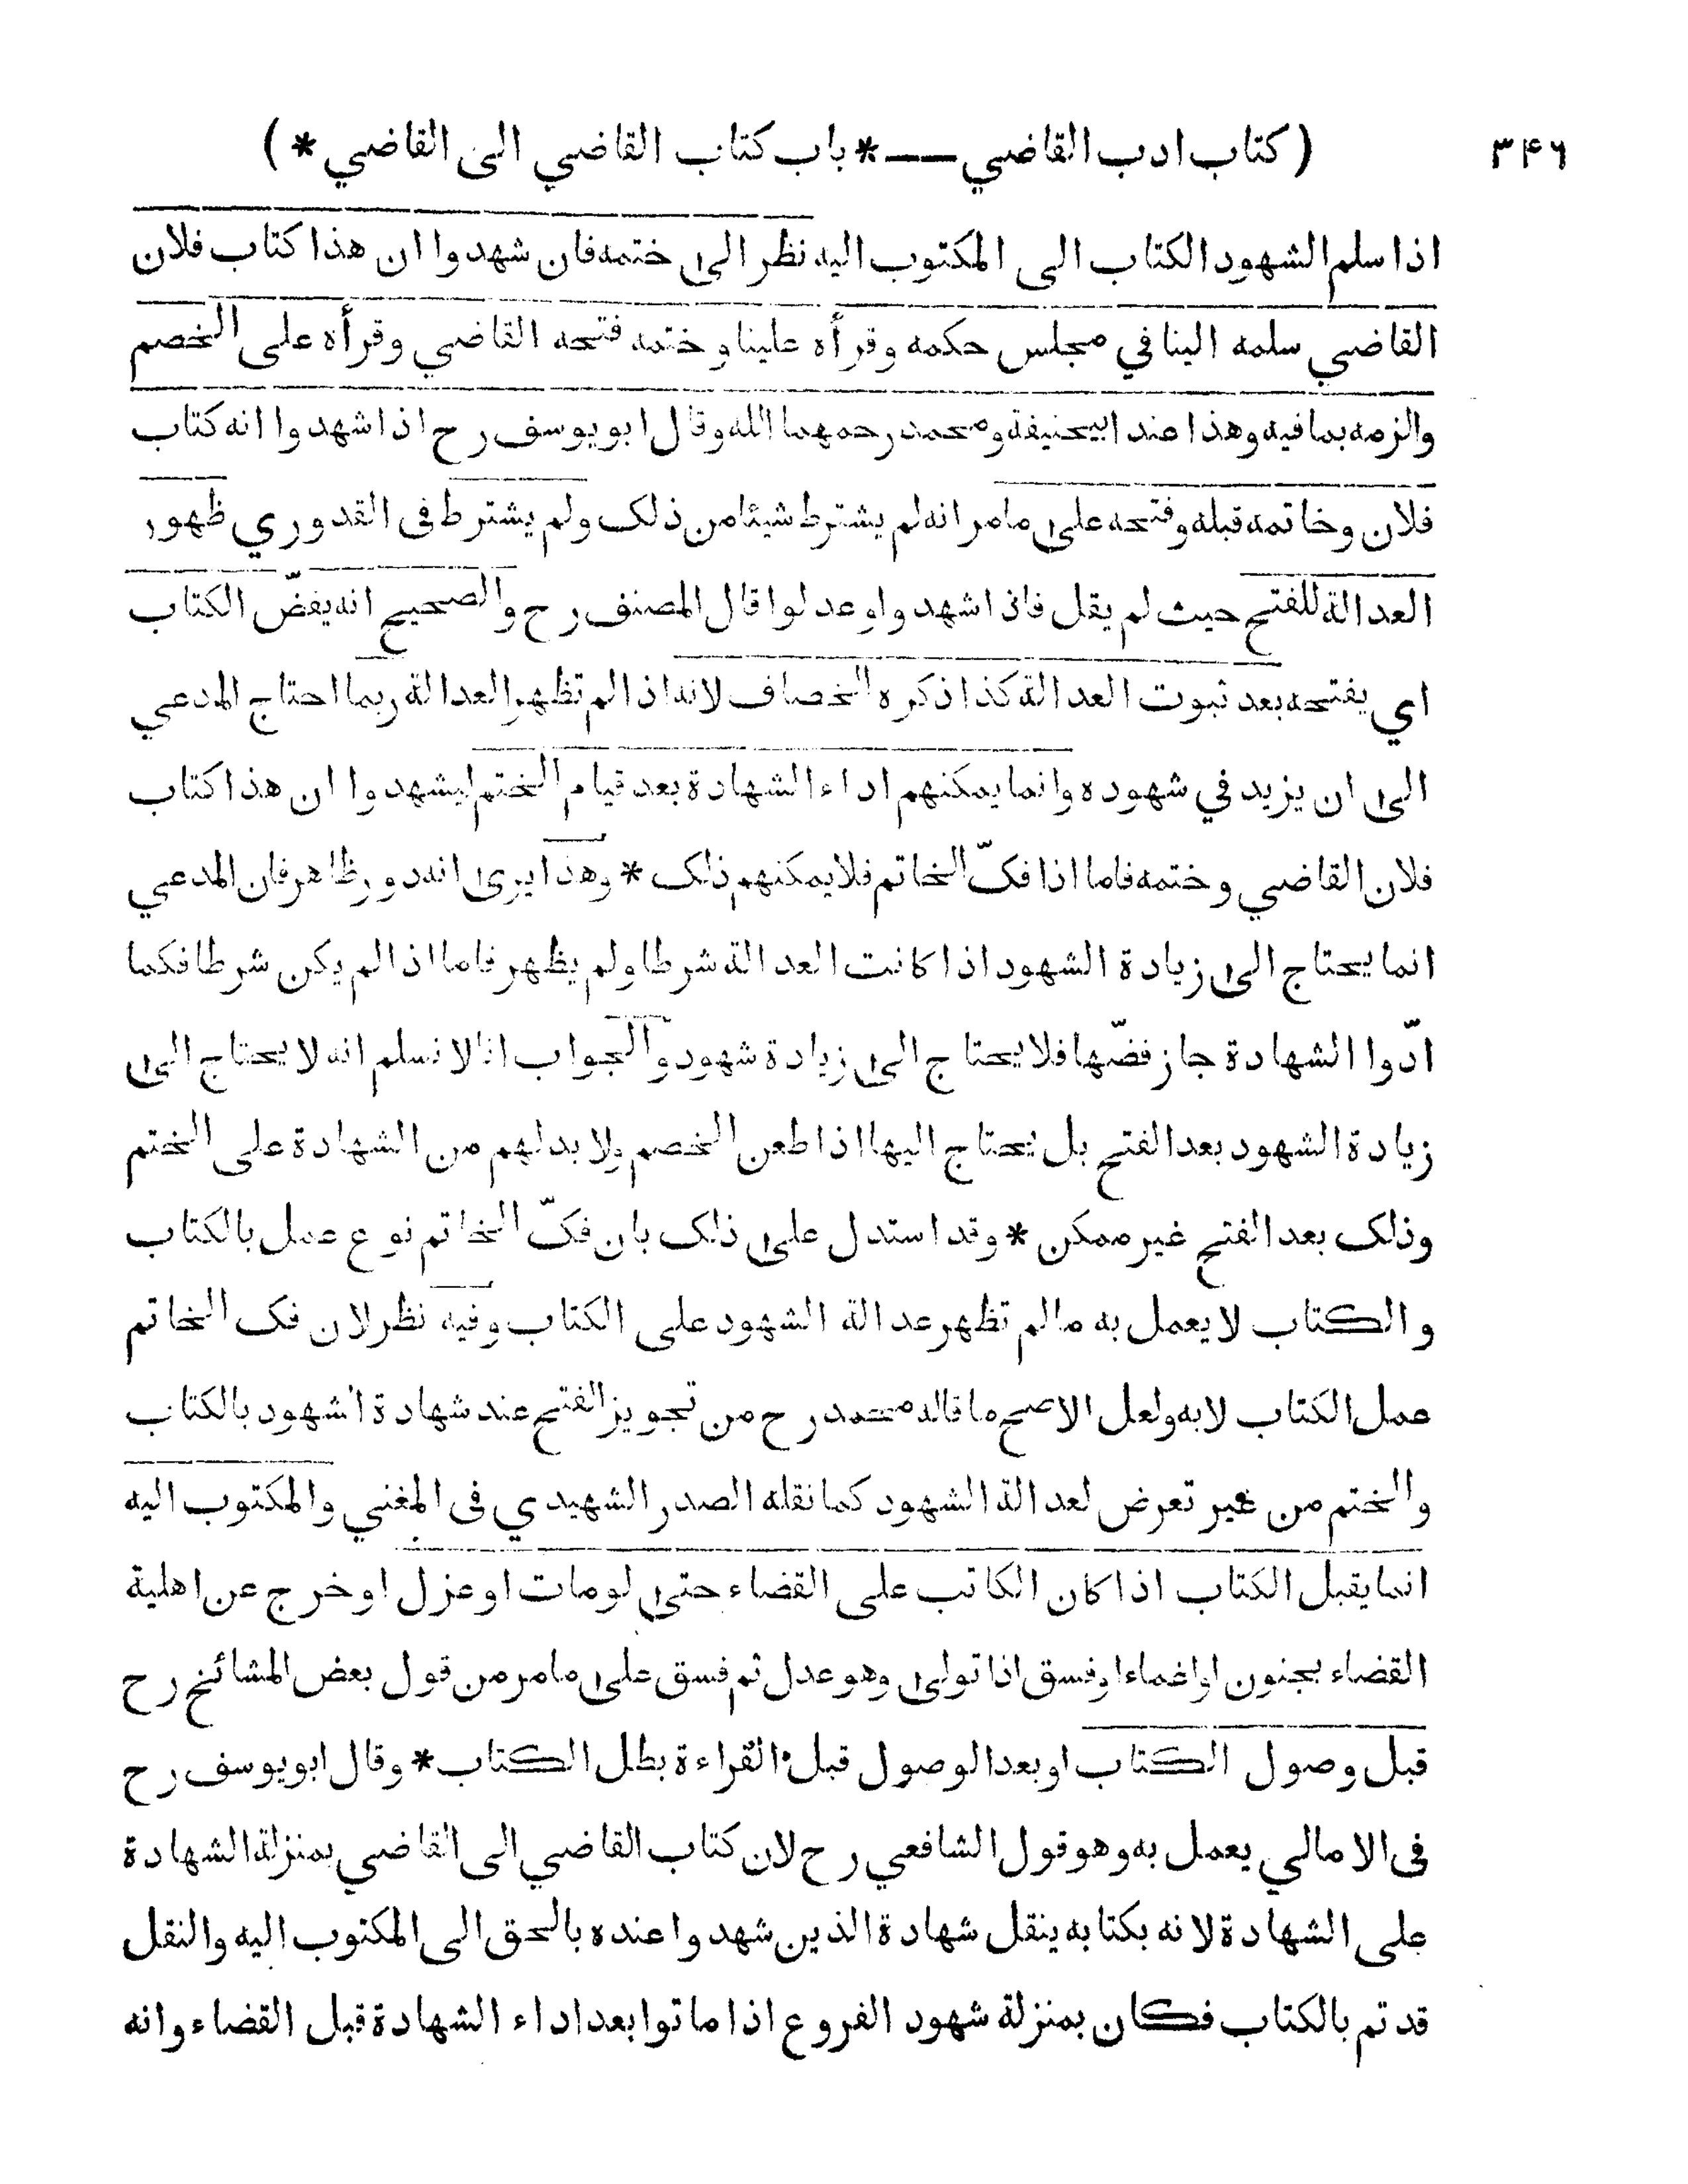 ٣٤٦ ( كتاب ادب القاضي — * باب كتاب القاضي الى القاضي * )
اذا سلم الشهود الكتاب الى المكتوب اليه نظر الى ختمه فان شهدوا ان هذا كتاب فلان
القاضي سلمه الينا في مجلس حكمه وقرأه علينا وختمه فتحه القاضي وقرأه على الخصم
والزمه بما فيه وهذا عند ابيحنيفة ومحمد رحمهما الله وقال ابو يوسف رح اذا شهدوا انه كتاب
فلان وخاتمه قبله وفتحه على ما مر انه لم يشترط شيئا من ذلك ولم يشترط فى القدوري ظهور
العدالة للفتح حيث لم يقل فاذا شهدوا وعدلوا قال المصنف رح والصحيح انه يفضّ الكتاب
اي يفتحه بعد ثبوت العدالة كذا ذكره الخصاف لانه اذا لم تظهر العدالة ربما احتاج المدعي
الى ان يزيد في شهوده وانما يمكنهم اداء الشهادة بعد قيام الختم ليشهدوا ان هذا كتاب
فلان القاضي وختمه فاما اذا فكّ الخاتم فلا يمكنهم ذلك * وهذا يرى انه دور ظاهر فان المدعي
انما يحتاج الى زيادة الشهود اذا كانت العدالة شرطا ولم يظهر فاما اذا لم يكن شرطا فكما
ادّوا الشهادة جاز فضّها فلا يحتاج الى زيادة شهود والجواب انا لا نسلم انه لا يحتاج الى
زيادة الشهود بعد الفتح بل يحتاج اليها اذا طعن الخصم ولا بد لهم من الشهادة على الختم
وذلك بعد الفتح غير ممكن * وقد استدل على ذلك بان فكّ الخاتم نوع عمل بالكتاب
والكتاب لا يعمل به ما لم تظهر عدالة الشهود على الكتاب وفيه نظر لان فك الخاتم
عمل الكتاب لا به ولعل الاصح ما قاله محمد رح من تجويز الفتح عند شهادة الشهود بالكتاب
والختم من غير تعرض لعدالة الشهود كما نقله الصدر الشهيد ي فى المغني والمكتوب اليه
انما يقبل الكتاب اذا كان الكاتب على القضاء حتى لو مات او عزل او خرج عن اهلية
القضاء بجنون او اغماء او فسق اذا تولى وهو عدل ثم فسق على ما مر من قول بعض المشائخ رح
قبل وصول الكتاب او بعد الوصول قبل القراءة بطل الكتاب * وقال ابو يوسف رح
فى الامالي يعمل به وهو قول الشافعي رح لان كتاب القاضي الى القاضي بمنزلة الشهادة
على الشهادة لانه بكتابه ينقل شهادة الذين شهدوا عنده بالحق الى المكتوب اليه والنقل
قد تم بالكتاب فكان بمنزلة شهود الفروع اذا ماتوا بعد اداء الشهادة قبل القضاء وانه